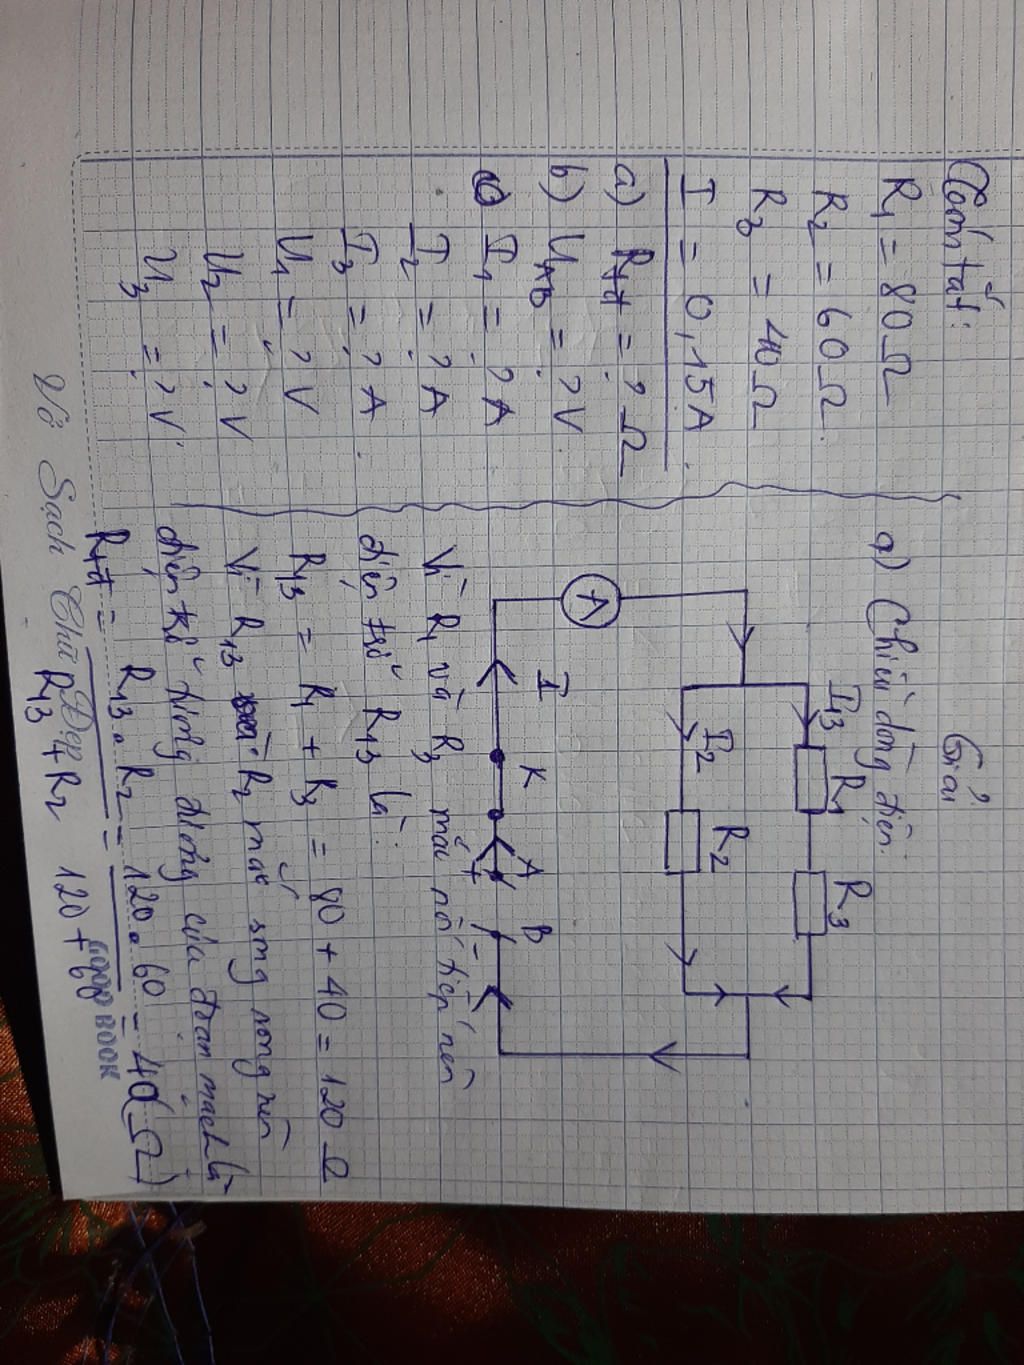 Tóm tắt:
R₁ = 80Ω
R₂ = 60Ω
R₃ = 40Ω
I = 0,15A
a) Rtđ = ? Ω
b) UAB = ? V
c) I₁ = ? A
I₂ = ? A
I₃ = ? A
U₁ = ? V
U₂ = ? V
U₃ = ? V
Giải
a) Chiều dòng điện.
I₁₃ R₁ R₃
I₂ R₂
A
I K A B
+ -
Vì R₁ và R₃ mắc nối tiếp nên
điện trở R₁₃ là:
R₁₃ = R₁ + R₃ = 80 + 40 = 120 Ω
Vì R₁₃ R₂ mắc song song nên
điện trở tương đương của đoạn mạch là
Rtđ = R₁₃ . R₂ / R₁₃ + R₂ = 120 . 60 / 120 + 60 = 40(Ω)
Vở Sạch Chữ Đẹp
GOOD BOOK